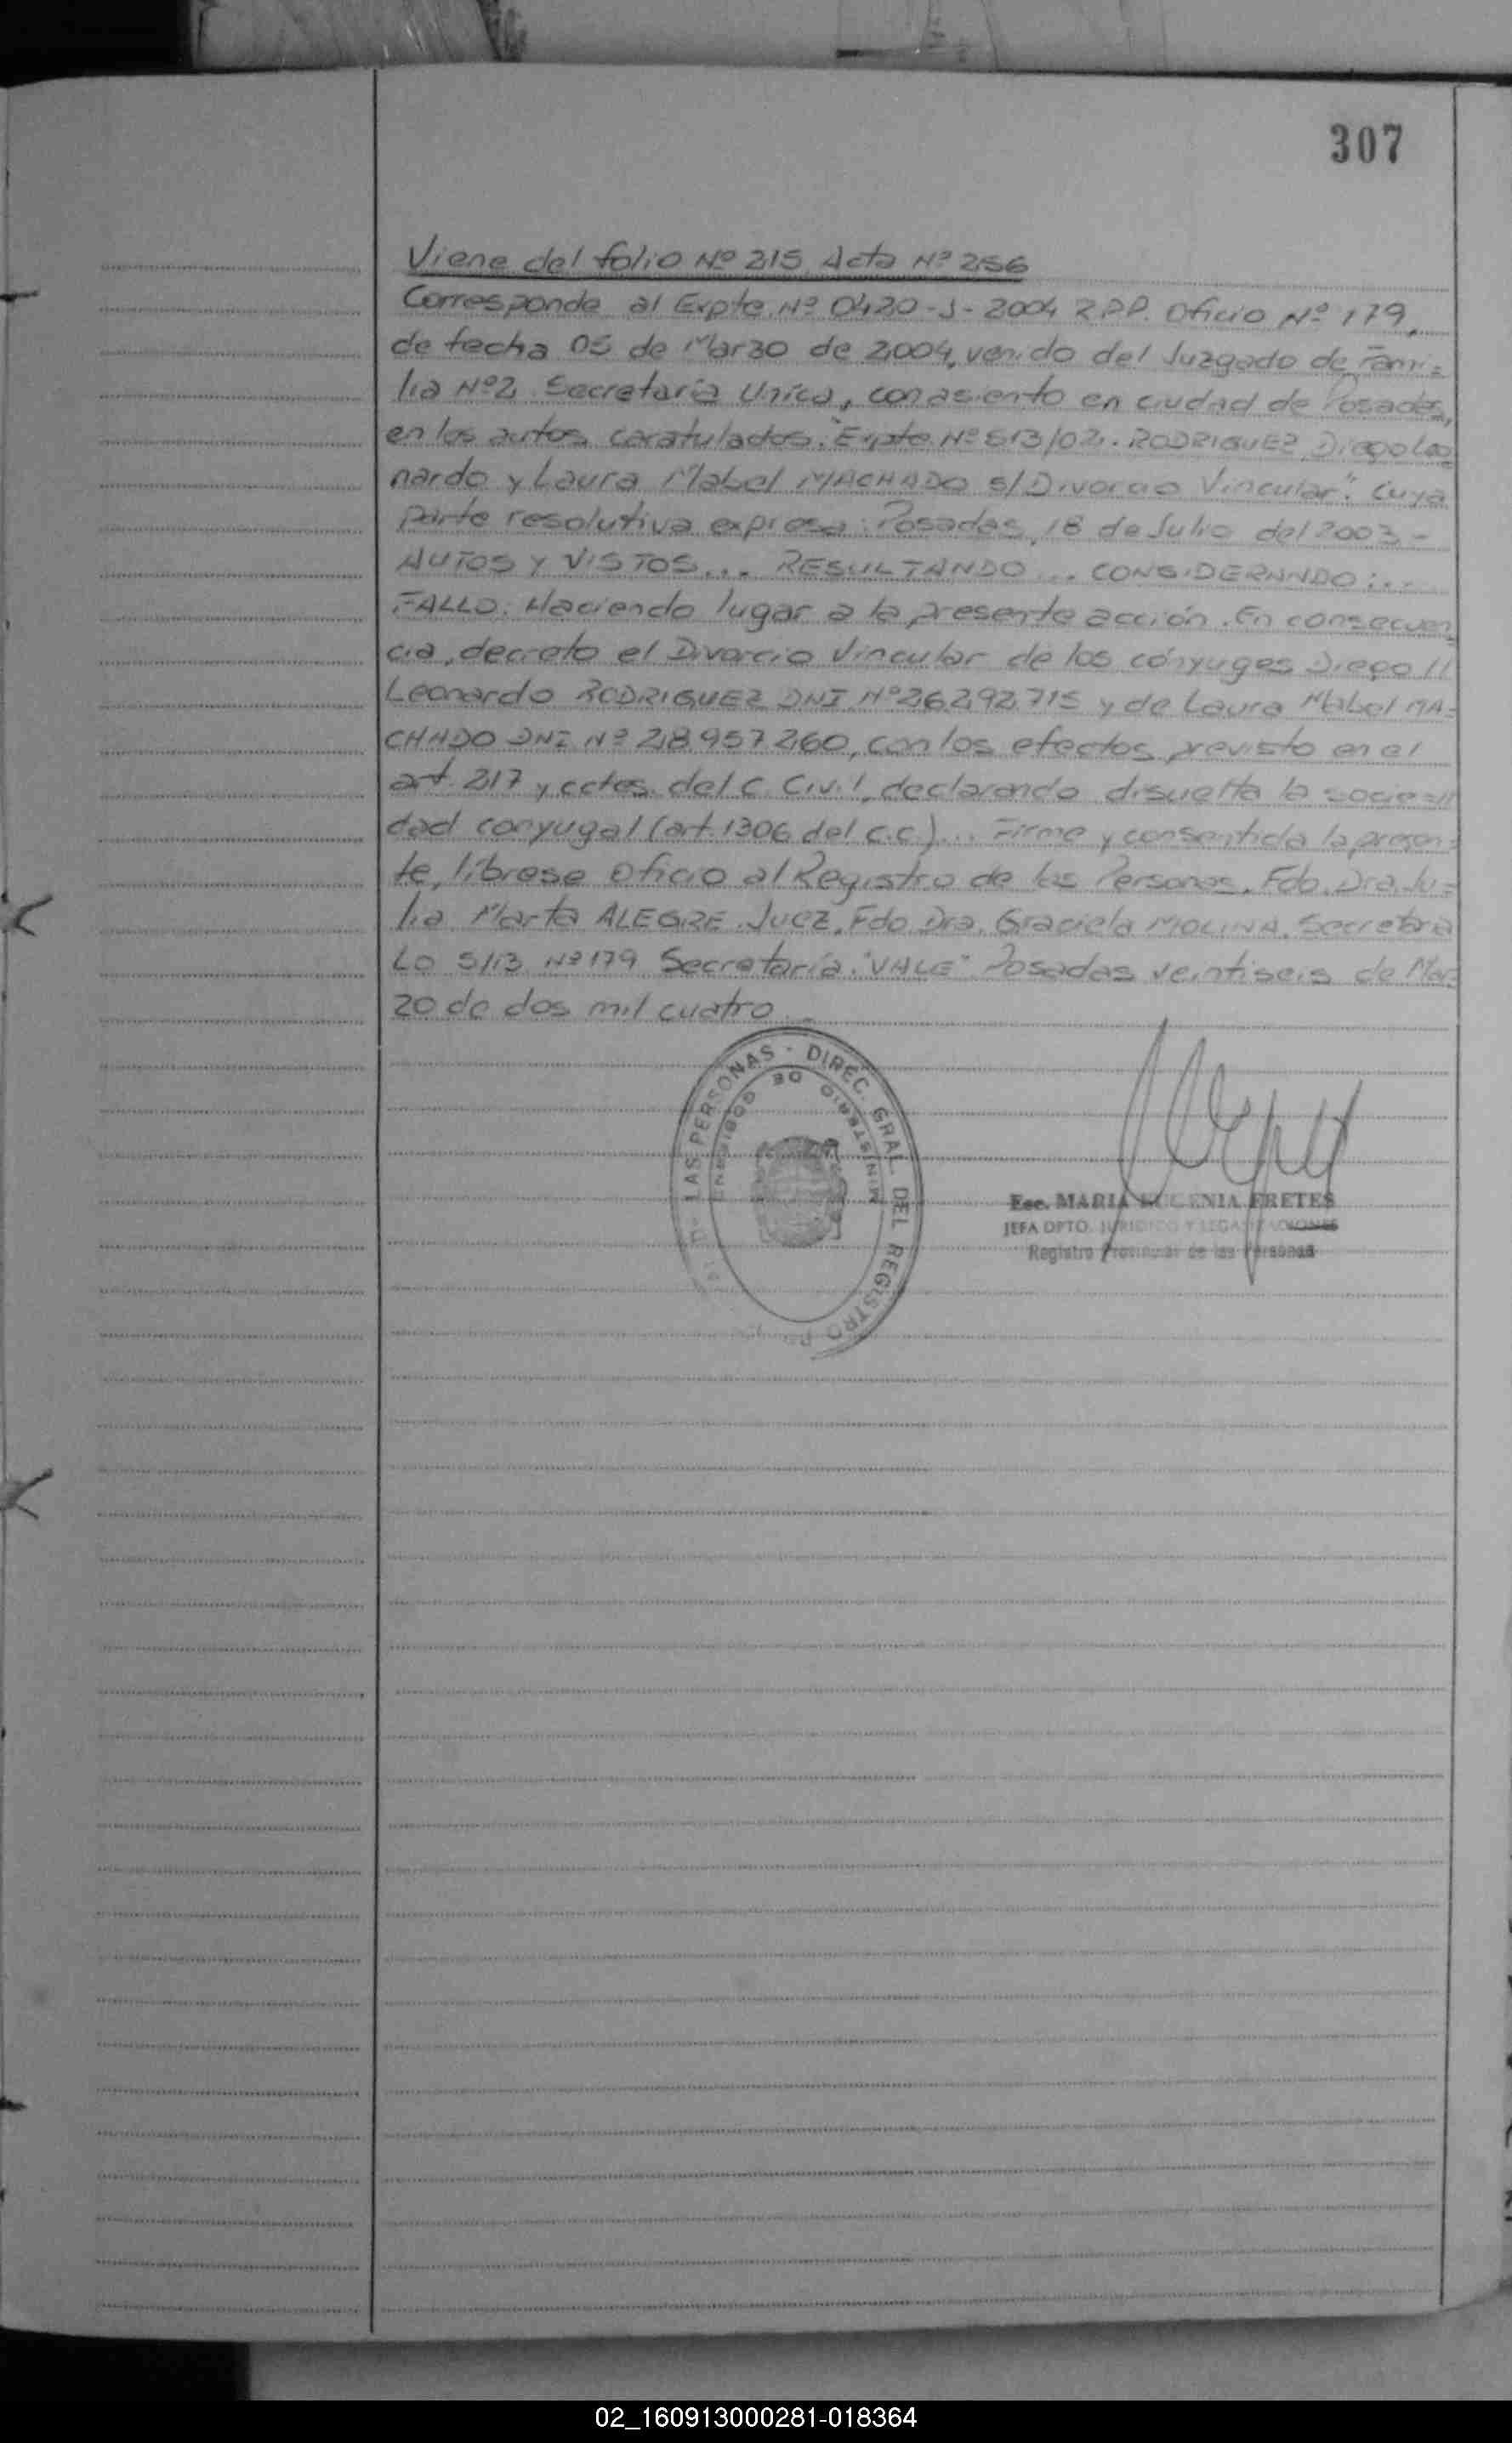 307
Viene del folio Nº 215 Acta Nº 256
Corresponde al Expte. Nº 0420-J-2004 R.P.P. Oficio Nº 179,
de fecha 05 de Marzo de 2004, venido del Juzgado de Fami=
lia Nº 2 Secretaría Unica, con asiento en ciudad de Posadas,
en los autos caratulados: "Expte. Nº 513/02. RODRIGUEZ Diego Leo
nardo y Laura Mabel MACHADO s/Divorcio Vincular". Cuya
parte resolutiva expresa: Posadas, 18 de Julio del 2003-
AUTOS Y VISTOS... RESULTANDO... CONSIDERANDO:...
FALLO: Haciendo lugar a la presente acción. En consecuen
cia, decreto el Divorcio Vincular de los cónyuges Diego //
Leonardo RODRIGUEZ DNI Nº 26.292.715 y de Laura Mabel MA=
CHADO DNI Nº 28.957.260, con los efectos previsto en el
art. 217 y cctes. del C. Civil, declarando disuelta la socie=//
dad conyugal (art. 1306 del C.C.)... Firme y consentida la presen=
te, líbrese Oficio al Registro de las Personas. Fdo. Dra. Ju=
lia Marta ALEGRE. Juez. Fdo. Dra. Graciela MOLINA. Secretaria
Lo S/13 Nº 179 Secretaría. "VALE" Posadas veintiseis de Mar=
zo de dos mil cuatro.-
LAS PERSONAS - DIREC. GRAL. DEL REGISTRO
MINISTERIO DE GOBIERNO
Esc. MARIA EUGENIA FRETES
JEFA DPTO. JURIDICO Y LEGALIZACIONES
Registro Provincial de las Personas
02_160913000281-018364